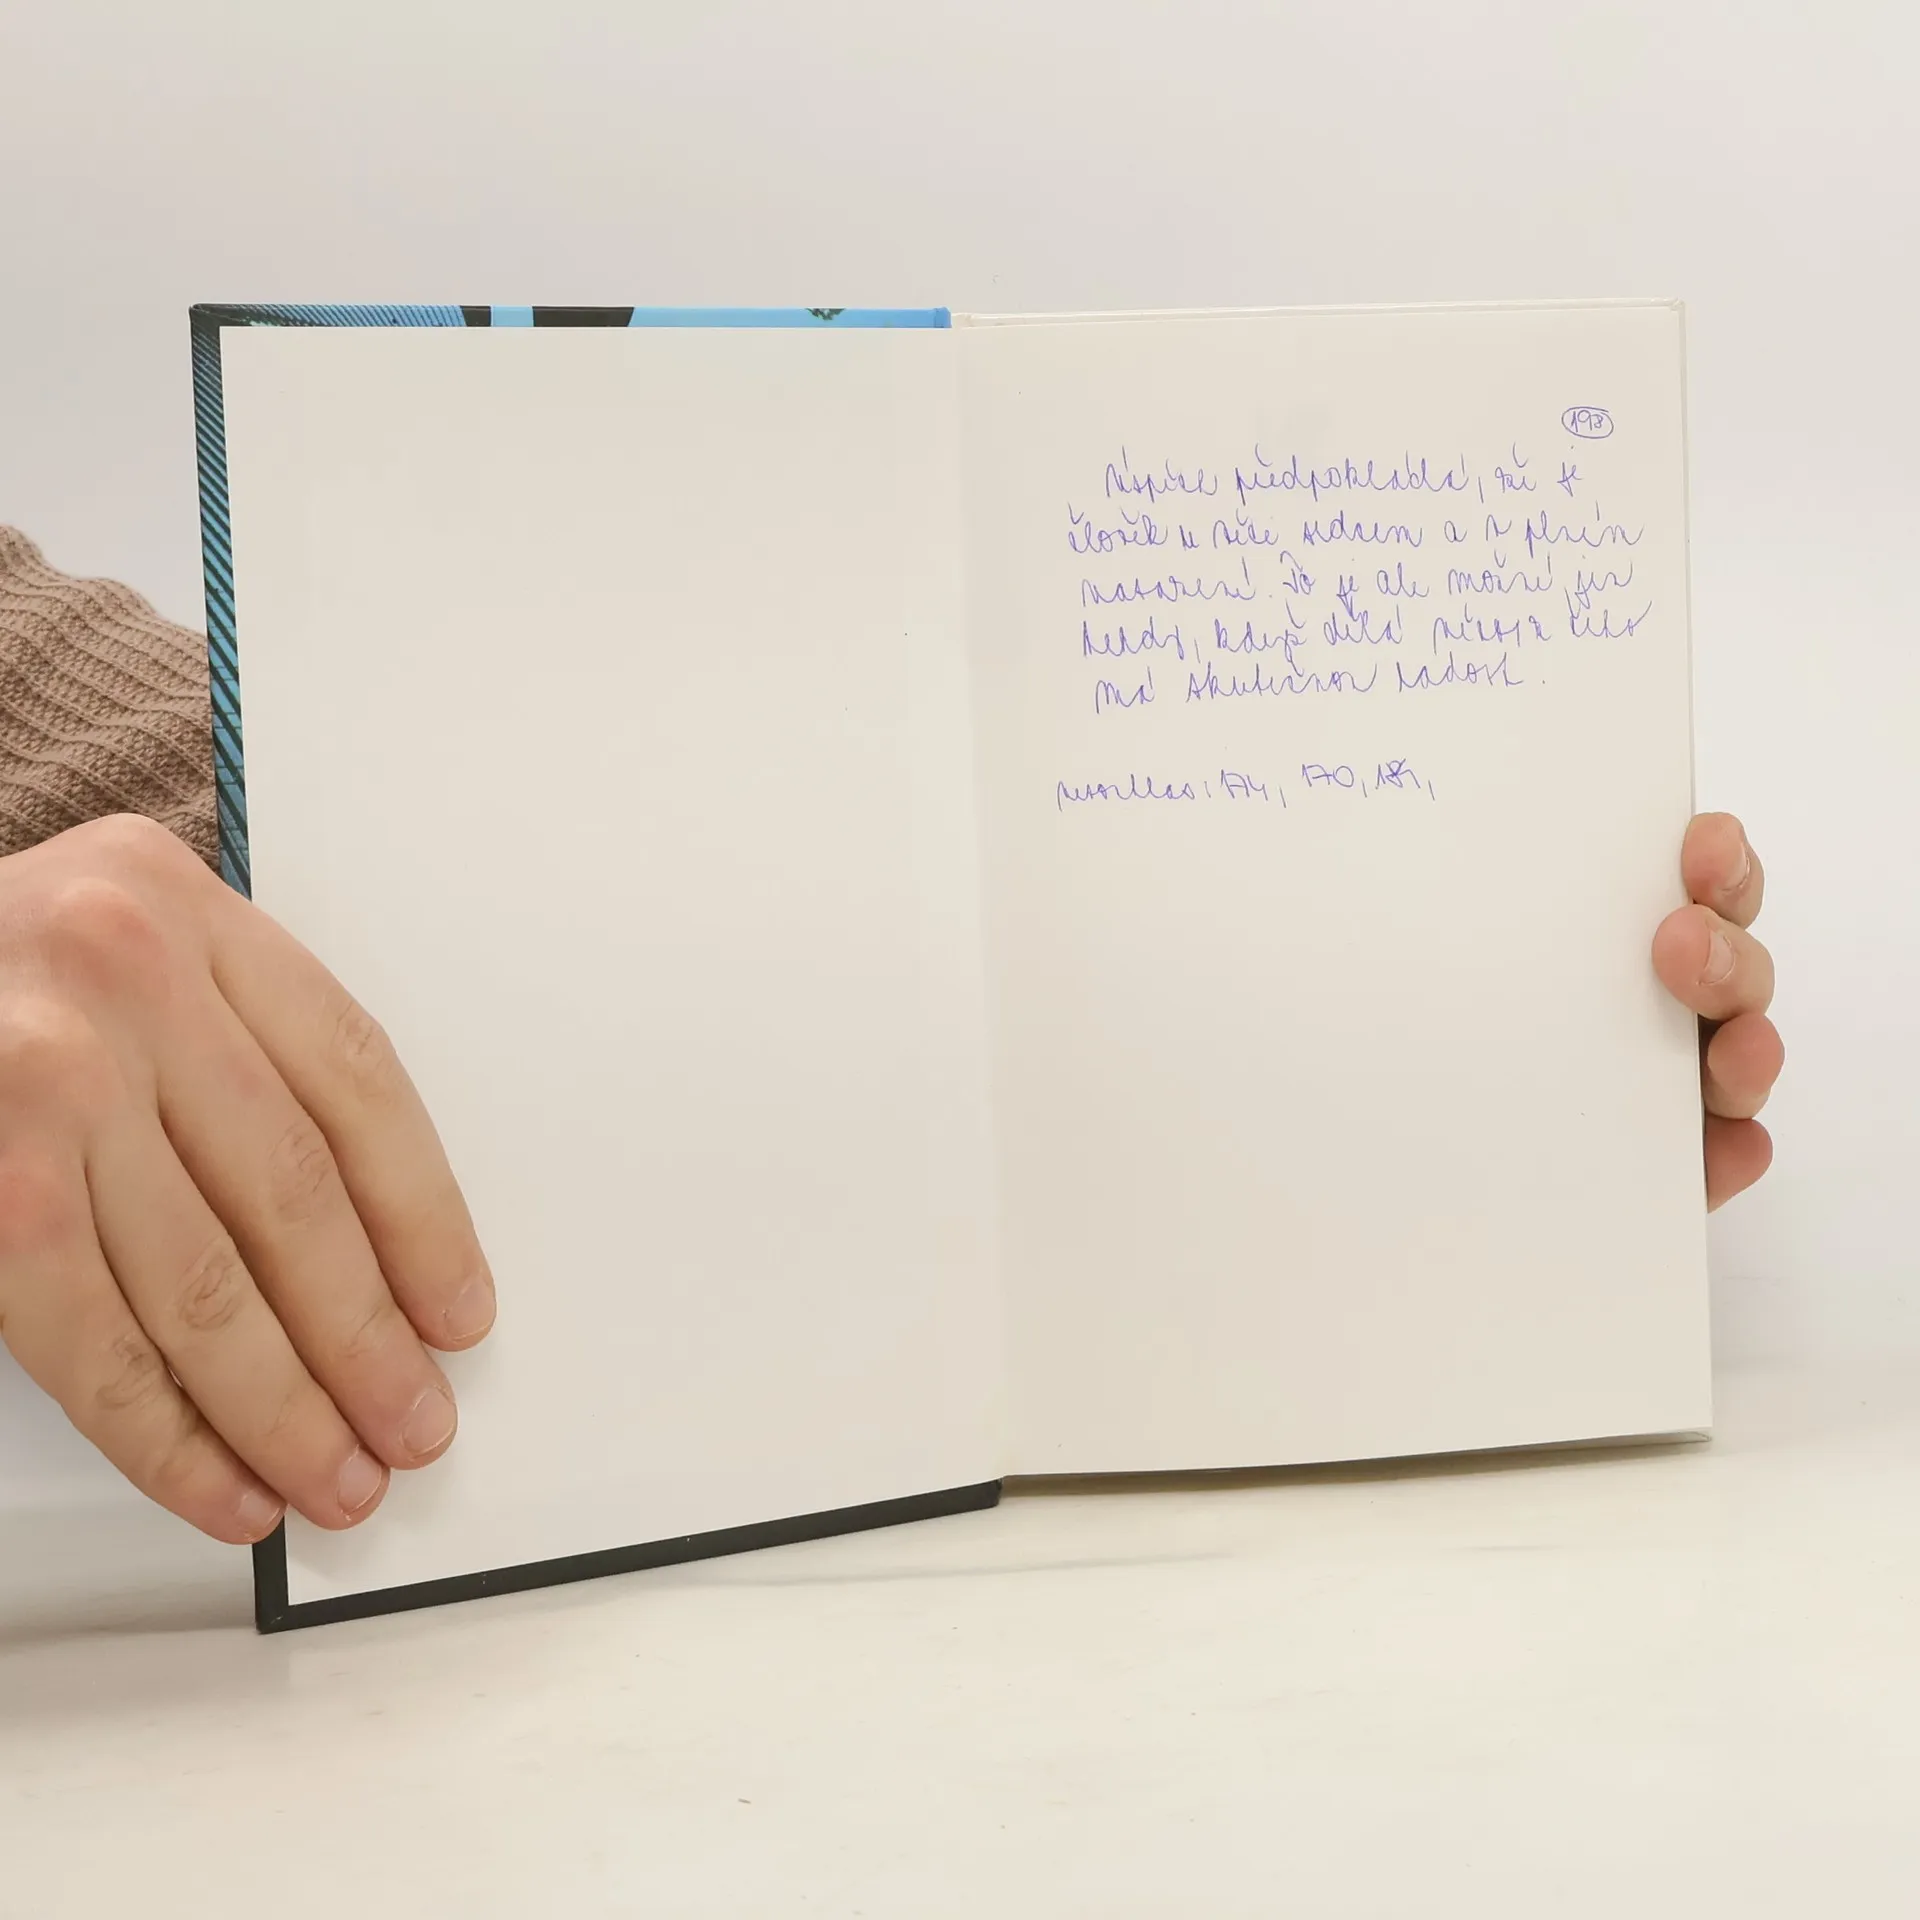 198
úspěch předpokládá, že je
člověk u věci srdcem a v plném
nasazení. To je ale možné jen
tehdy, když dělá něco, z čeho
má skutečnou radost.
174, 170, 184,